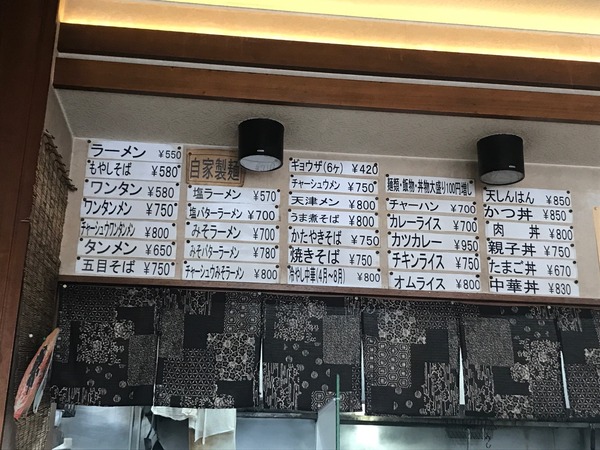 ラーメン ¥550
もやしそば ¥580
ワンタン ¥580
ワンタンメン ¥750
チャーシュウワンタンメン ¥800
タンメン ¥650
五目そば ¥750
自家製麺
塩ラーメン ¥570
塩バターラーメン ¥700
みそラーメン ¥700
みそバターラーメン ¥780
チャーシュウみそラーメン ¥800
ギョウザ(6ヶ) ¥420
チャーシュウメン ¥750
天津メン ¥800
うま煮そば ¥800
かたやきそば ¥750
焼きそば ¥750
冷やし中華(4月〜8月) ¥800
麺類・飯物・丼物大盛り100円増し
チャーハン ¥700
カレーライス ¥700
カツカレー ¥950
チキンライス ¥750
オムライス ¥800
天しんはん ¥850
かつ丼 ¥850
肉丼 ¥800
親子丼 ¥750
たまご丼 ¥670
中華丼 ¥830